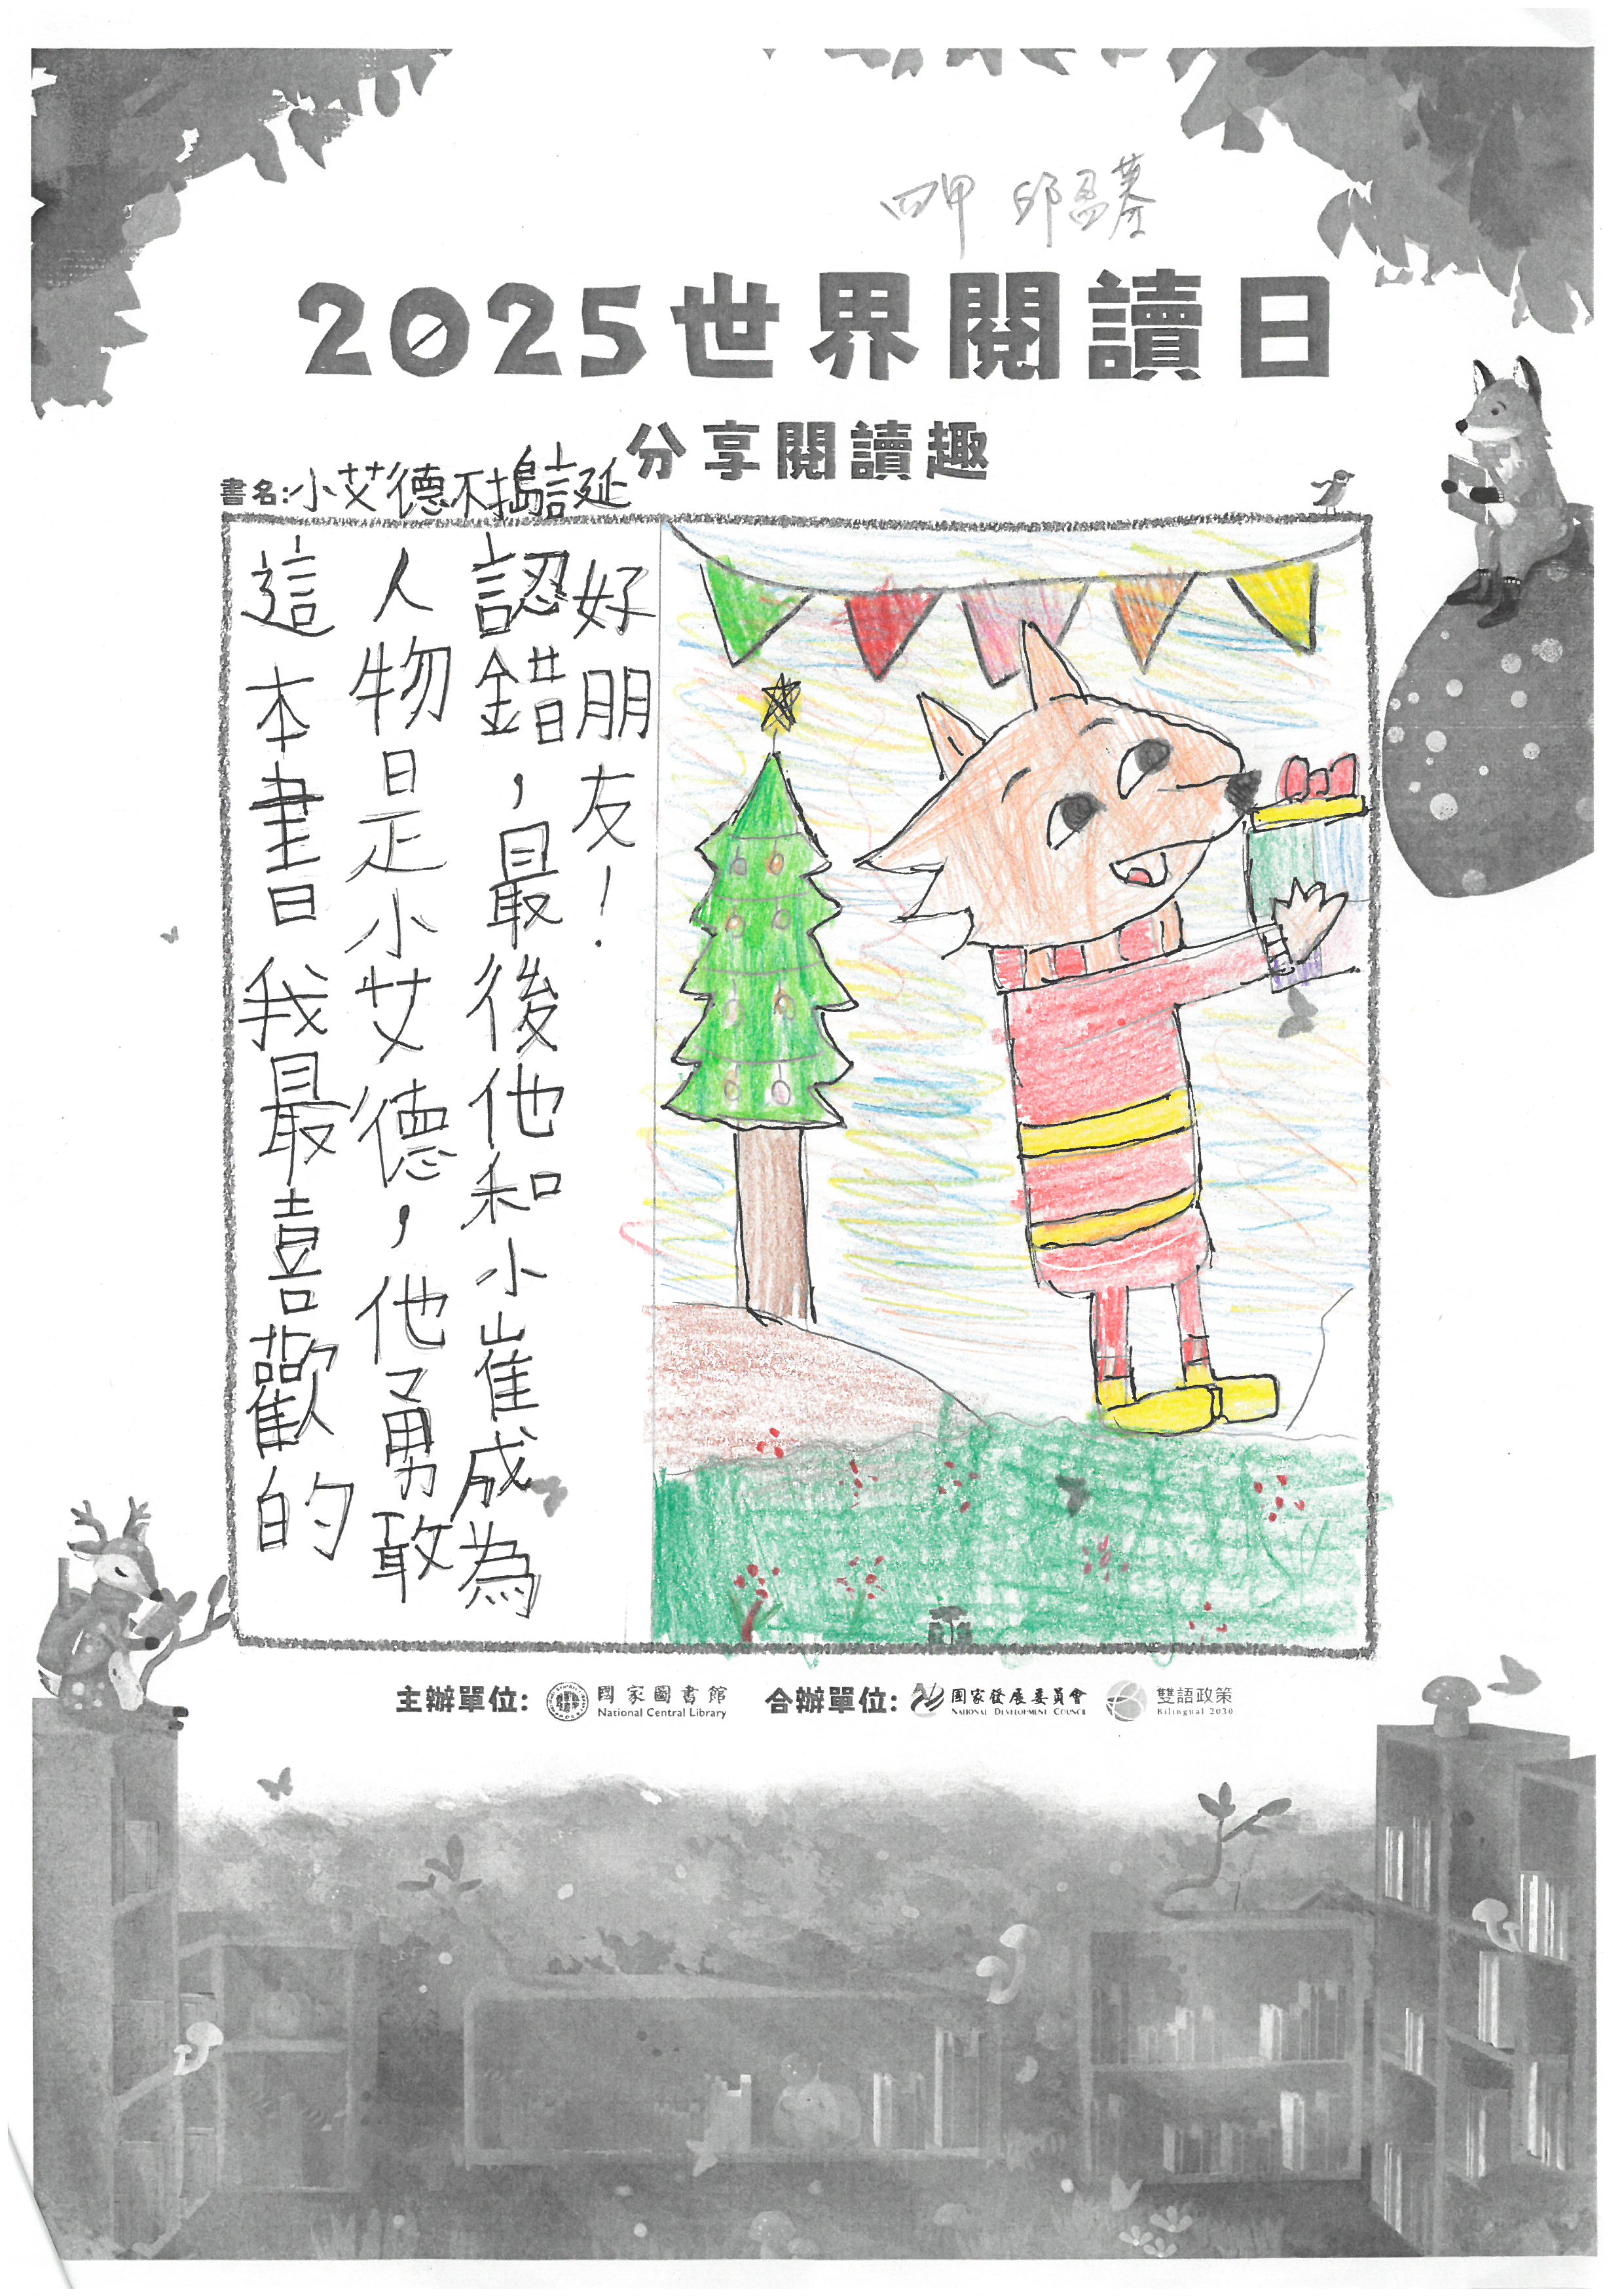 四甲 邱盈蓁
2025世界閱讀日
分享閱讀趣
書名:小艾德不搗誕
這本書我最喜歡的
人物是小艾德，他勇敢
認錯，最後他和小崔成為
好朋友！
主辦單位: 國家圖書館 National Central Library 合辦單位: 國家發展委員會 NATIONAL DEVELOPMENT COUNCIL 雙語政策 Bilingual 2030